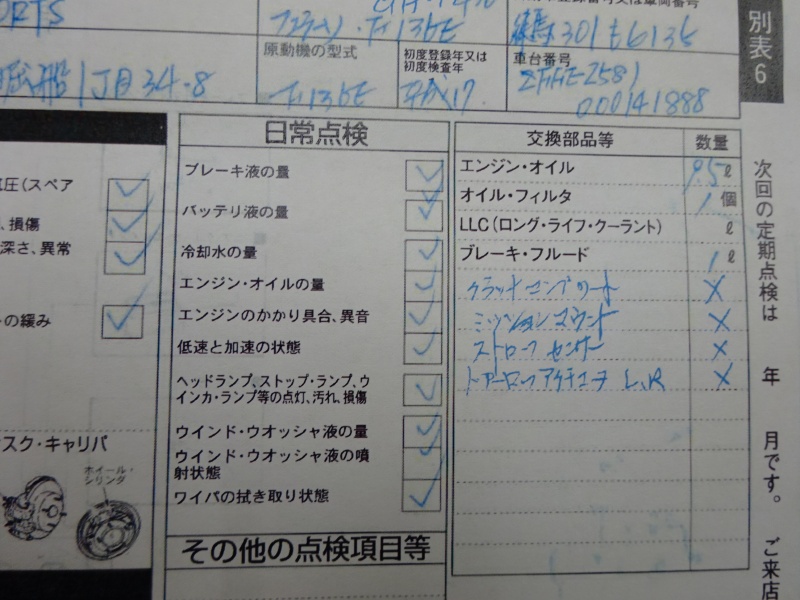 別表6
原動機の型式
初度登録年又は
初度検査年
車台番号
F136E
平成17
000141888
1丁目34-8
日常点検
ブレーキ液の量
バッテリ液の量
冷却水の量
エンジン・オイルの量
エンジンのかかり具合、異音
低速と加速の状態
ヘッドランプ、ストップ・ランプ、ウ
インカ・ランプ等の点灯、汚れ、損傷
ウインド・ウオッシャ液の量
ウインド・ウオッシャ液の噴
射状態
ワイパの拭き取り状態
その他の点検項目等
圧(スペア
、損傷
深さ、異常
の緩み
スク・キャリパ
ホイール・
シリンダ
交換部品等 数量
エンジン・オイル 9.5 ℓ
オイル・フィルタ 1 個
LLC(ロング・ライフ・クーラント) ℓ
ブレーキ・フルード 1 ℓ
クラッチコンプリート ×
ミッションマウント ×
ストローク センサー ×
ドアーロックアクチュエータ L,R ×
次回の定期点検は 年 月です。 ご来店